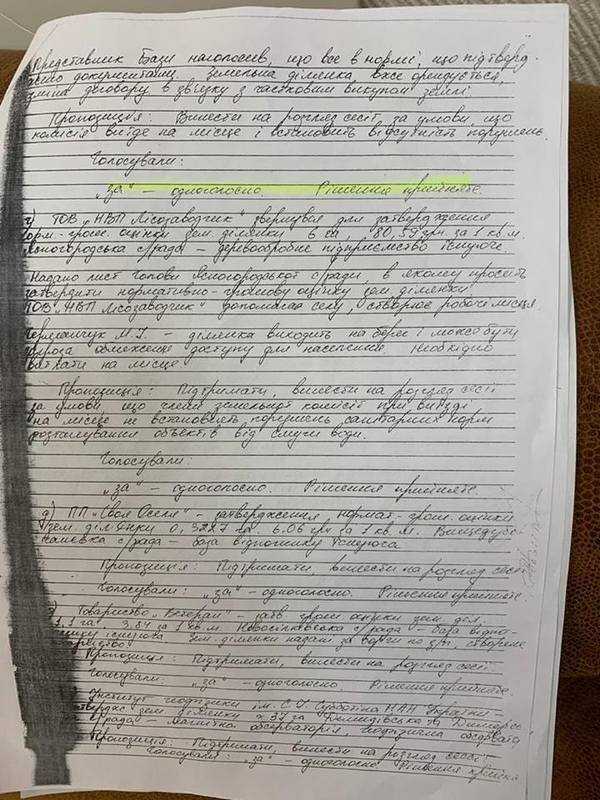 Представник бази наголосив, що все в нормі, що підтверд-
жено документами. Земельна ділянка вже орендується,
зміна договору в звязку з частковим викупом землі.
Пропозиція: Винести на розгляд сесії, за умови, що
комісія виїде на місце і встановить відсутність порушень.
Голосували:
„за" – одноголосно. Рішення прийняте.
ТОВ „НВП Лісозаводчик" звернувся для затвердження
норм-грош. оцінки зем. ділянки 6 га, 80,59 грн. за 1 кв.м.
Ясногородська с/рада – деревообробне підприємство існуюче.
Надано лист голови Ясногородської с/ради, в якому просить
затвердити нормативно-грошову оцінку зем. ділянки
ТОВ „НВП Лісозаводчик" допомагає селу, створює робочі місця
М.І. – ділянка виходить на берег і може бути
загроза обмеження доступу для населення. Необхідно
виїхати на місце.
Пропозиція: Підтримати, винести на розгляд сесії
за умови, що члени земельної комісії при виїзді
на місце не встановлять порушень санітарних норм
розташування обєктів від смуги води.
Голосували:
„за" – одноголосно. Рішення прийняте.
д) ПП „Своя Оселя" – затвердження нормат-грош. оцінки
зем. ділянки 0,3227 га. 6.06 грн за 1 кв.м.
с/рада – база відпочинку існуюча.
Пропозиція: Підтримати, винести на розгляд сесії
Голосували: „за" – одноголосно. Рішення прийняте
Товариство „Ветеран" – затв. грош. оцінки зем. діл.
га. 3.84 за 1 кв.м. Новосілківська с/рада – база відпо-
чинку існуюча. Зем. ділянки надані за
Пропозиція: Підтримати, винести на розгляд сесії.
Голосували: „за" – одноголосно Рішення прийняте.
Інститут геофізики ім. С.І. Субботіна НАН України
зем. ділянки за Демидівська
с/рада – магнітна обсерваторія, геофізична обсерват.
Пропозиція: Підтримати, винести на розгляд сесії
Голосували: „за" – одноголосно Рішення прийня